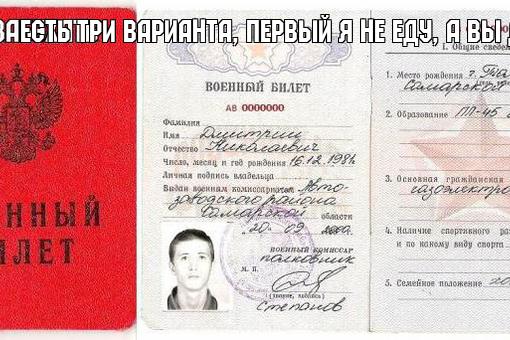 ТРИ ВАРИАНТА, ПЕРВЫЙ Я НЕ ЕДУ, А ВЫ
ННЫЙ
ИЛЕТ
ВОЕННЫЙ БИЛЕТ
АВ 0000000
Фамилия
Имя Дмитрий
Отчество Николаевич
Число, месяц и год рождения 16.12.1981
Личная подпись владельца
Выдан военным комиссариатом Авто-
заводского района
Самарской области
20 09
ВОЕННЫЙ КОМИССАР
полковник
М. П.
(звание, подпись)
Степанов
1. Общие сведе
1. Место рождения г.
Самарской
2. Образование ПЛ-45
3. Основная гражданская
газоэлектро
4. Наличие спортивного раз
и по какому виду спорта
5. Семейное положение хо